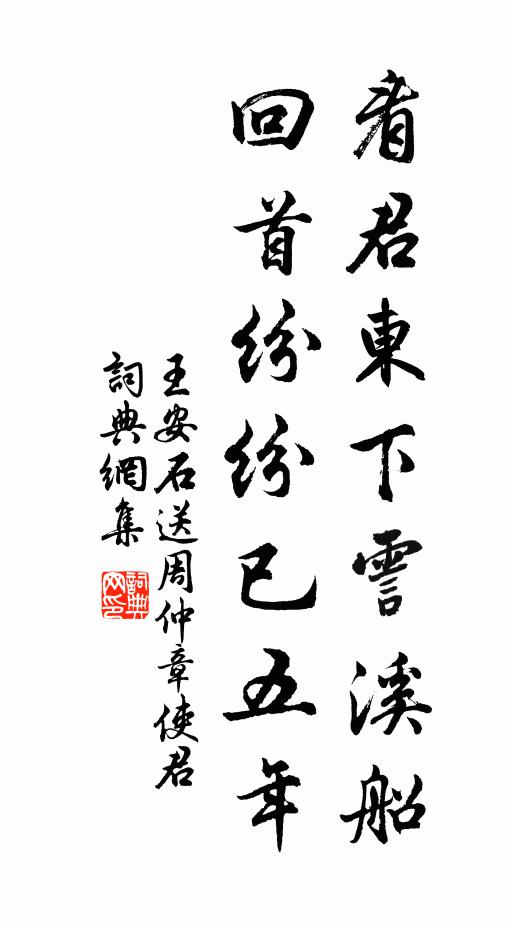 看君東下霅溪船
回首紛紛已五年
王安石送周仲章使君
詞典網集
詞典网印